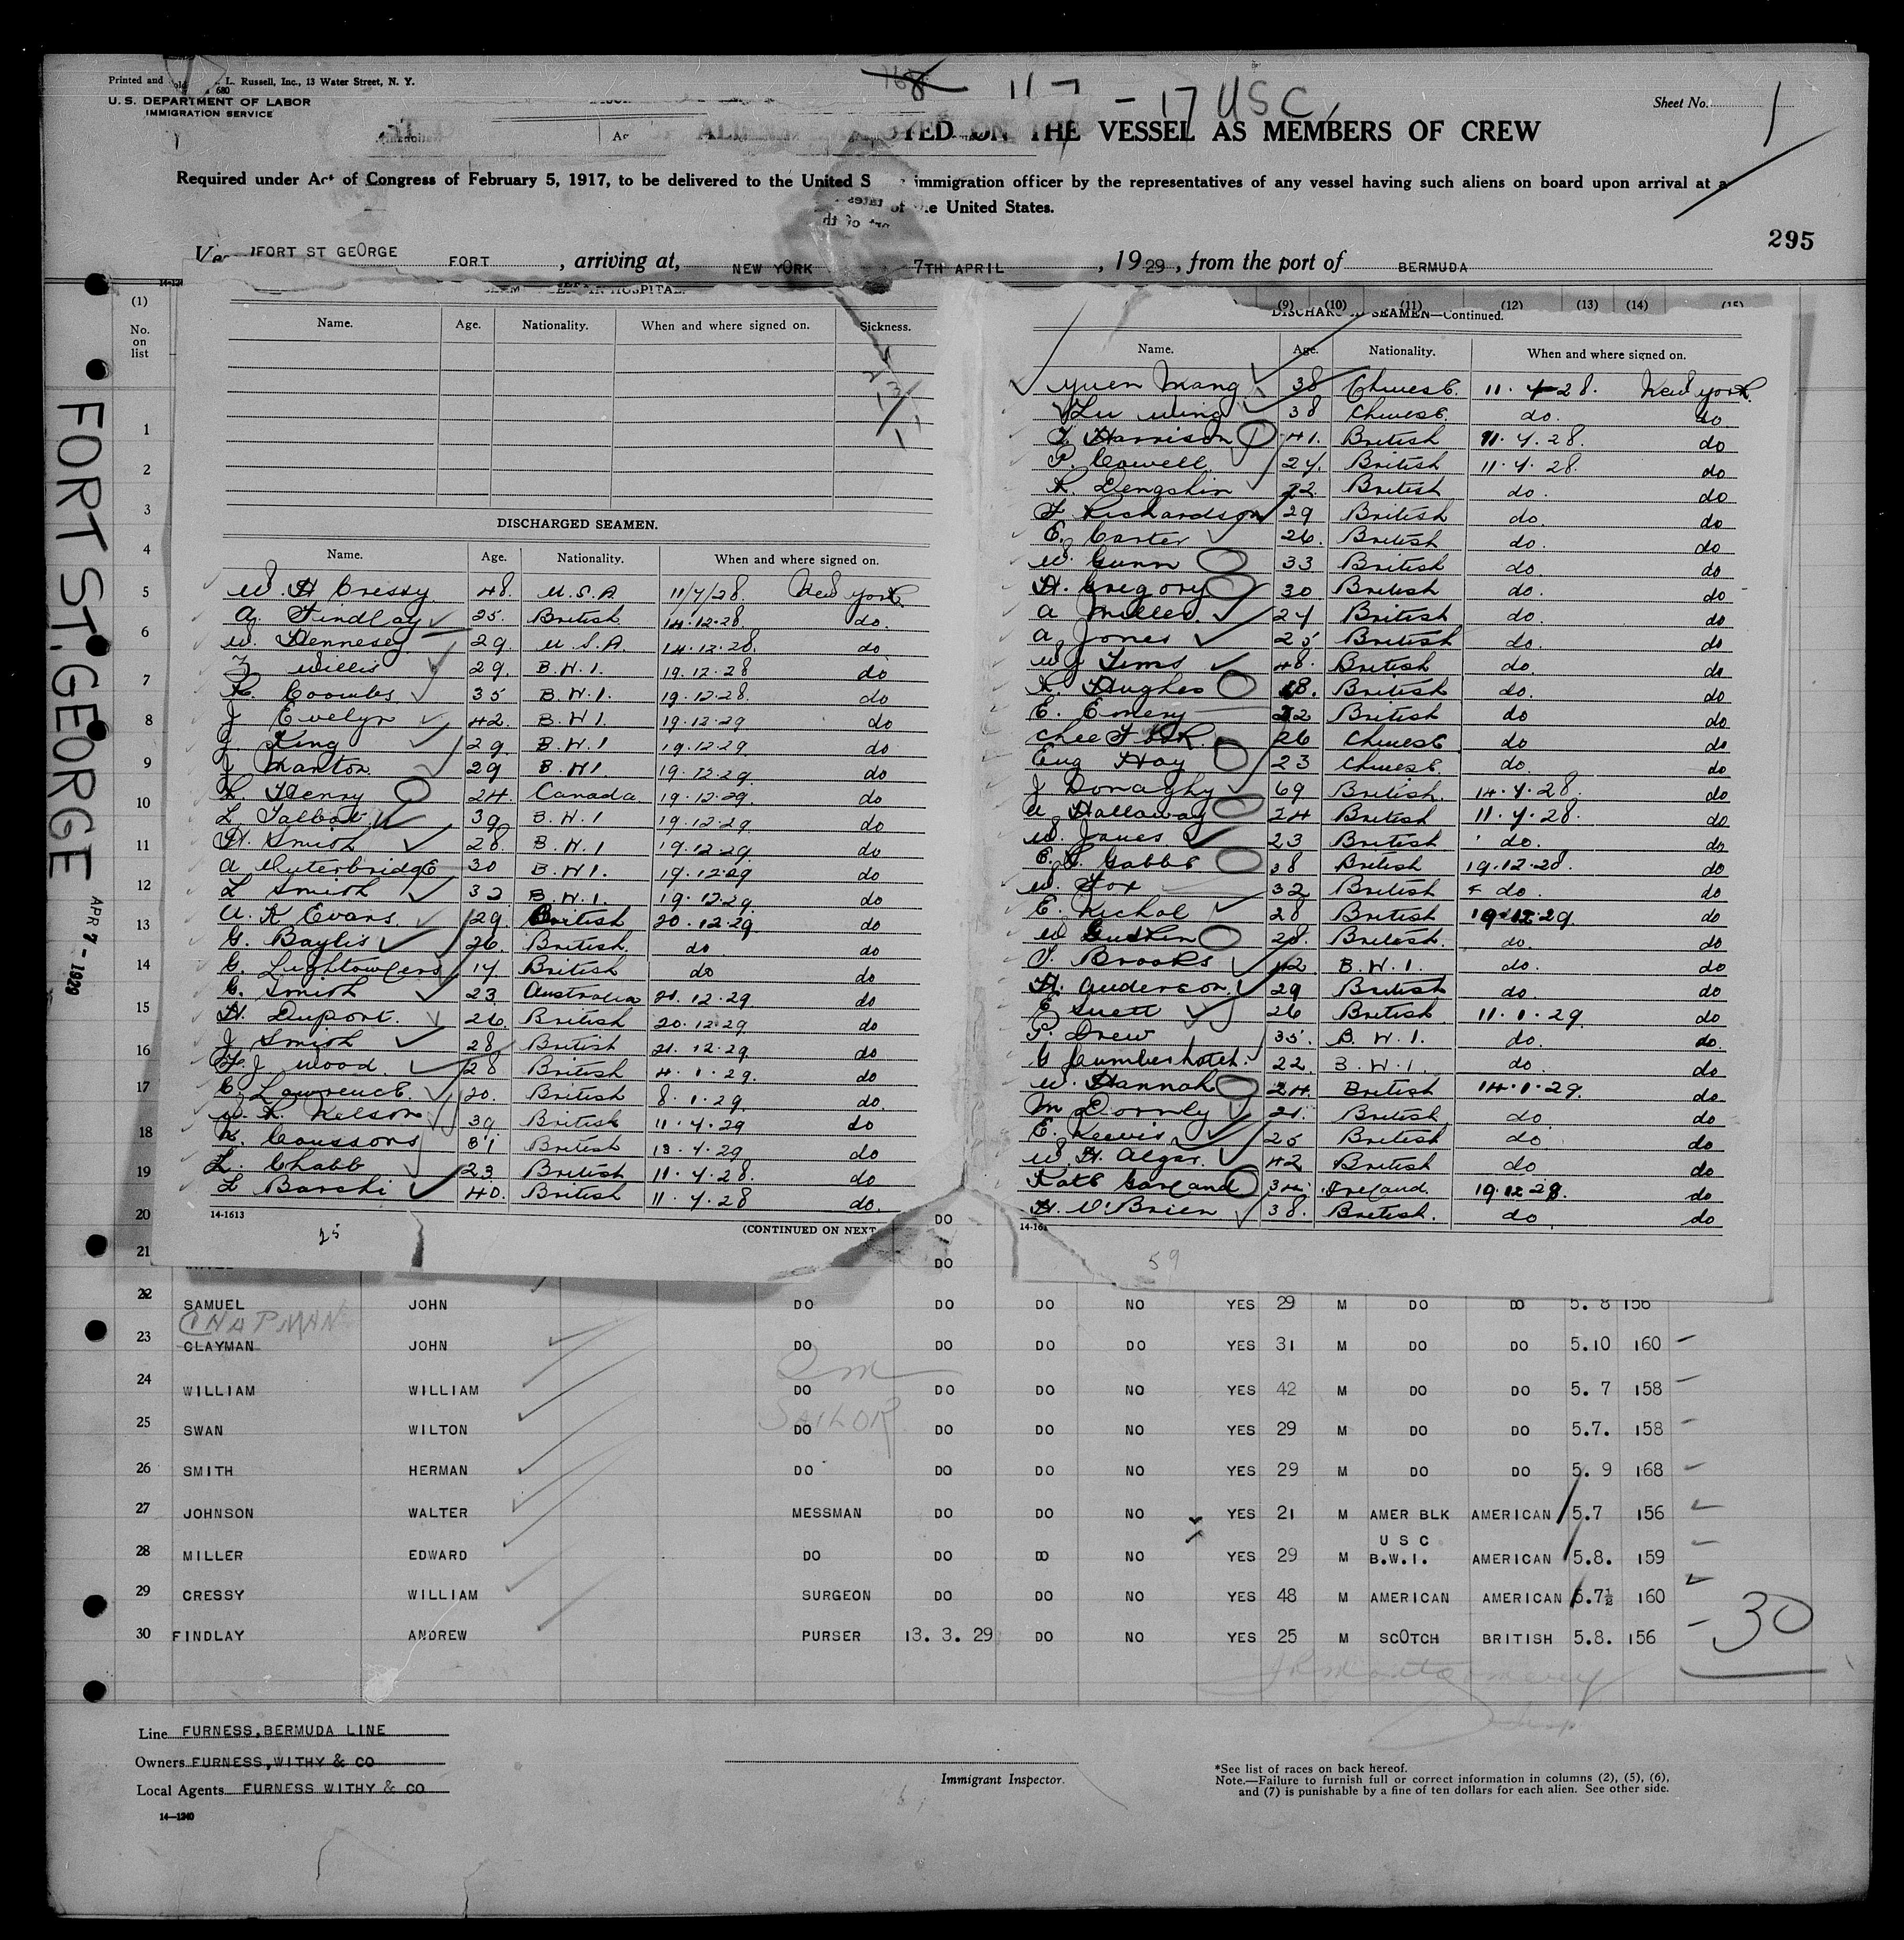 Printed and L. Russell, Inc., 13 Water Street, N. Y.
680
U. S. DEPARTMENT OF LABOR
IMMIGRATION SERVICE
11 7 - 17 USC
Sheet No. 1
THE VESSEL AS MEMBERS OF CREW
Required under Act of Congress of February 5, 1917, to be delivered to the United immigration officer by the representatives of any vessel having such aliens on board upon arrival at a
of the United States.
295
FORT ST GEORGE FORT, arriving at, NEW YORK 7TH APRIL, 1929, from the port of BERMUDA
(1) (9) (10) (11) (12) (13) (14) (15)
No. on list
FORT ST. GEORGE APR 7 - 1929
Name. Age. Nationality. When and where signed on. Sickness.
DISCHARGED SEAMEN.
Name. Age. Nationality. When and where signed on.
W. H Cressy 48. U.S.A 11/4/28. New York
A. Findlay 25. British 14.12.28. do.
W. Hennesey 29. U.S.A 14.12.28. do
Willis 29. B.W.I. 19.12.28 do
R. Coombes 35 B.W.I. 19.12.28. do
J Evelyn 42. B.W.I. 19.12.29 do
J. King 29. B.W.I 19.12.29 do
J Manton 29 B.W.I. 19.12.29. do
R. Henry 24. Canada 19.12.29. do
L. Talbot 39 B.W.I 19.12.29 do
H. Smith 28. B.W.I 19.12.29 do
A Outerbridge 30 B.W.I. 19.12.29 do
L Smith 32 B.W.I. 19.12.29. do
A. K Evans. 29. British 20.12.29 do
G. Baylis 26. British. do. do
G. Lightowlers 17 British do do
C. Smith 23. Australia 21.12.29 do
H. Dupont. 26. British 20.12.29 do
J Smith 28 British 21.12.29. do
J Wood. 28 British 4.1.29. do
C. Lawrence. 20. British 8.1.29. do.
W. R. Nelson 39 British 11.4.29 do
Coussons 31 British 13.4.29 do
L. Chabb 23. British 11.4.28. do
L Barshi 40. British 11.4.28 do.
14-1613
(CONTINUED ON NEXT
25
DISCHARGED SEAMEN—Continued.
Name. Age. Nationality. When and where signed on.
Yuen Mang 38 Chinese. 11.4.28. New York.
Lu Ming 38 Chinese. do. do.
Harrison 41. British 11.4.28. do
P. Cowell 24. British 11.4.28. do
British do. do
F. Richardson 29 British do. do
E. Carter 26. British do. do
W. Gunn 33 British do. do
H. Gregory 30 British do. do
A Miller. 24 British do. do
A Jones 25 British do. do
W J Tims 48. British do. do
R. Hughes 18. British do. do
E. Emery 22 British do do
Chee 26 Chinese do do
Eug Hoy 23 Chinese. do. do
J Donaghy 69 British. 14.4.28. do
A Hallaway 24 British 11.4.28. do
W. James 23 British do. do
Gabbe 38 British 19.12.28. do
W. Fox 32 British do. do
E. Nichol 28 British 19.12.29. do
W 28. British. do. do
Brooks 42 B.W.I. do. do
H. Anderson. 29 British do. do
E Suett 26 British 11.1.29. do
P. Drew 35. B.W.I. do. do.
22. B.W.I. do. do
W. Hannah 24. British 14.1.29. do
M Dornly 21. British do. do
E. 25 British do do
W. H. Algar. 42 British do do
Kate Garland Ireland. 19.12.28. do
H. O'Brien 38. British. do. do
59
1
2
3
4
5
6
7
8
9
10
11
12
13
14
15
16
17
18
19
20 DO
21 DO
22 SAMUEL JOHN DO DO DO NO YES 29 M DO DO 5. 8 156
CHAPMAN
23 CLAYMAN JOHN DO DO DO DO YES 31 M DO DO 5.10 160
24 WILLIAM WILLIAM DO DO DO NO YES 42 M DO DO 5. 7 158
SAILOR
25 SWAN WILTON DO DO DO NO YES 29 M DO DO 5.7. 158
26 SMITH HERMAN DO DO DO NO YES 29 M DO DO 5. 9 168
27 JOHNSON WALTER MESSMAN DO DO NO YES 21 M AMER BLK AMERICAN 5.7 156
U S C
28 MILLER EDWARD DO DO DO NO YES 29 M B.W.I. AMERICAN 5.8. 159
29 CRESSY WILLIAM SURGEON DO DO NO YES 48 M AMERICAN AMERICAN 5.7½ 160
30 FINDLAY ANDREW PURSER 13. 3. 29 DO NO YES 25 M SCOTCH BRITISH 5.8. 156
30
Line FURNESS,BERMUDA LINE
Owners FURNESS,WITHY & CO
Local Agents FURNESS WITHY & CO
14—1240
Immigrant Inspector.
*See list of races on back hereof.
Note.—Failure to furnish full or correct information in columns (2), (5), (6),
and (7) is punishable by a fine of ten dollars for each alien. See other side.